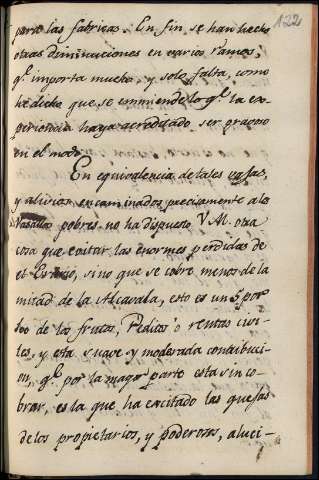 122
para las fabricas. En fin se han hecho
otras diminuciones en varios ramos,
q.e importa mucho, y solo falta, como
he dicho que se enmiende lo q.e la ex-
periencia haya acreditado ser gravoso
en el modo.
En equivalencia de tales vajas,
y alivios encaminados precisamente a los
Vasallos pobres no ha dispuesto V.M. otra
cosa que evitar las enormes perdidas de
el Erario, sino que se cobre menos de la
mitad de la Alcavala, esto es un 5 por
100 de los frutos, Reditos ó rentas civi-
les, y esta suave y moderada contribuci-
on, q.e por la mayor parte esta sin co-
brar, es la que ha excitado las quejas
de los propietarios, y poderosos, aluci-